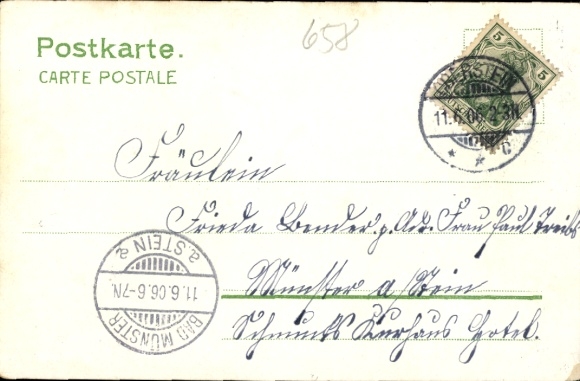 658
Postkarte.
CARTE POSTALE
5 5
OBERSTEIN
11.6.06.2-3N
* * C
Fräulein
Frieda Bender p. Adr. Frau Paul Treibs
Münster a/Stein
Schmucks Kurhaus Hotel.
BAD MÜNSTER a. STEIN
11.6.06.6-7N.